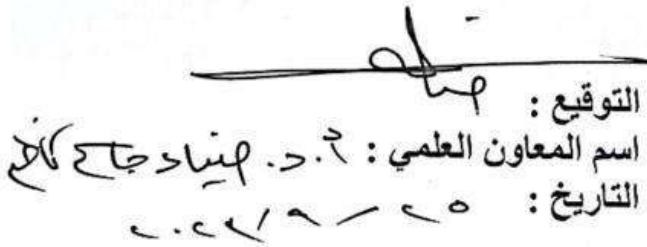 التوقيع :
اسم المعاون العلمي : أ.د. ضياء حاجم كاظم
التاريخ : ٢٥ / ٩ / ٢٠٢٢